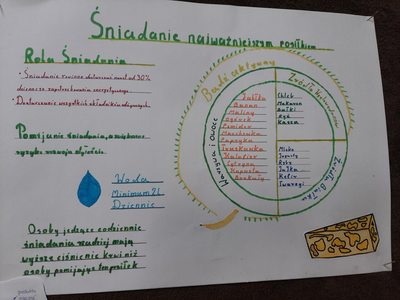 Śniadanie najważniejszym posiłkiem
Rola Śniadania
• Śniadanie powinno dostarczać nawet od 30%
dziennego zapotrzebowania energetycznego
• Dostarczenie wszystkich składników odżywczych
Pomijanie śniadania, zwiększa
ryzyko rozwoju otyłości
Woda
Minimum 2L
Dziennie
Osoby jedzące codziennie
śniadania rzadziej mają
wyższe ciśnienie krwi niż
osoby pomijające ten posiłek
Bądź aktywny
Warzywa i owoce
Jabłka
Banan
Maliny
Ogórek
Pomidor
Marchewka
Papryka
Truskawka
Kalafior
Cytryna
Kapusta
Brokuły
Źródła Węglowodanów
Chleb
Makaron
Bułki
Ryż
Kasza
Mleko
Jogurty
Ryby
Jajka
Kefir
Twarogi
Źródła Białka